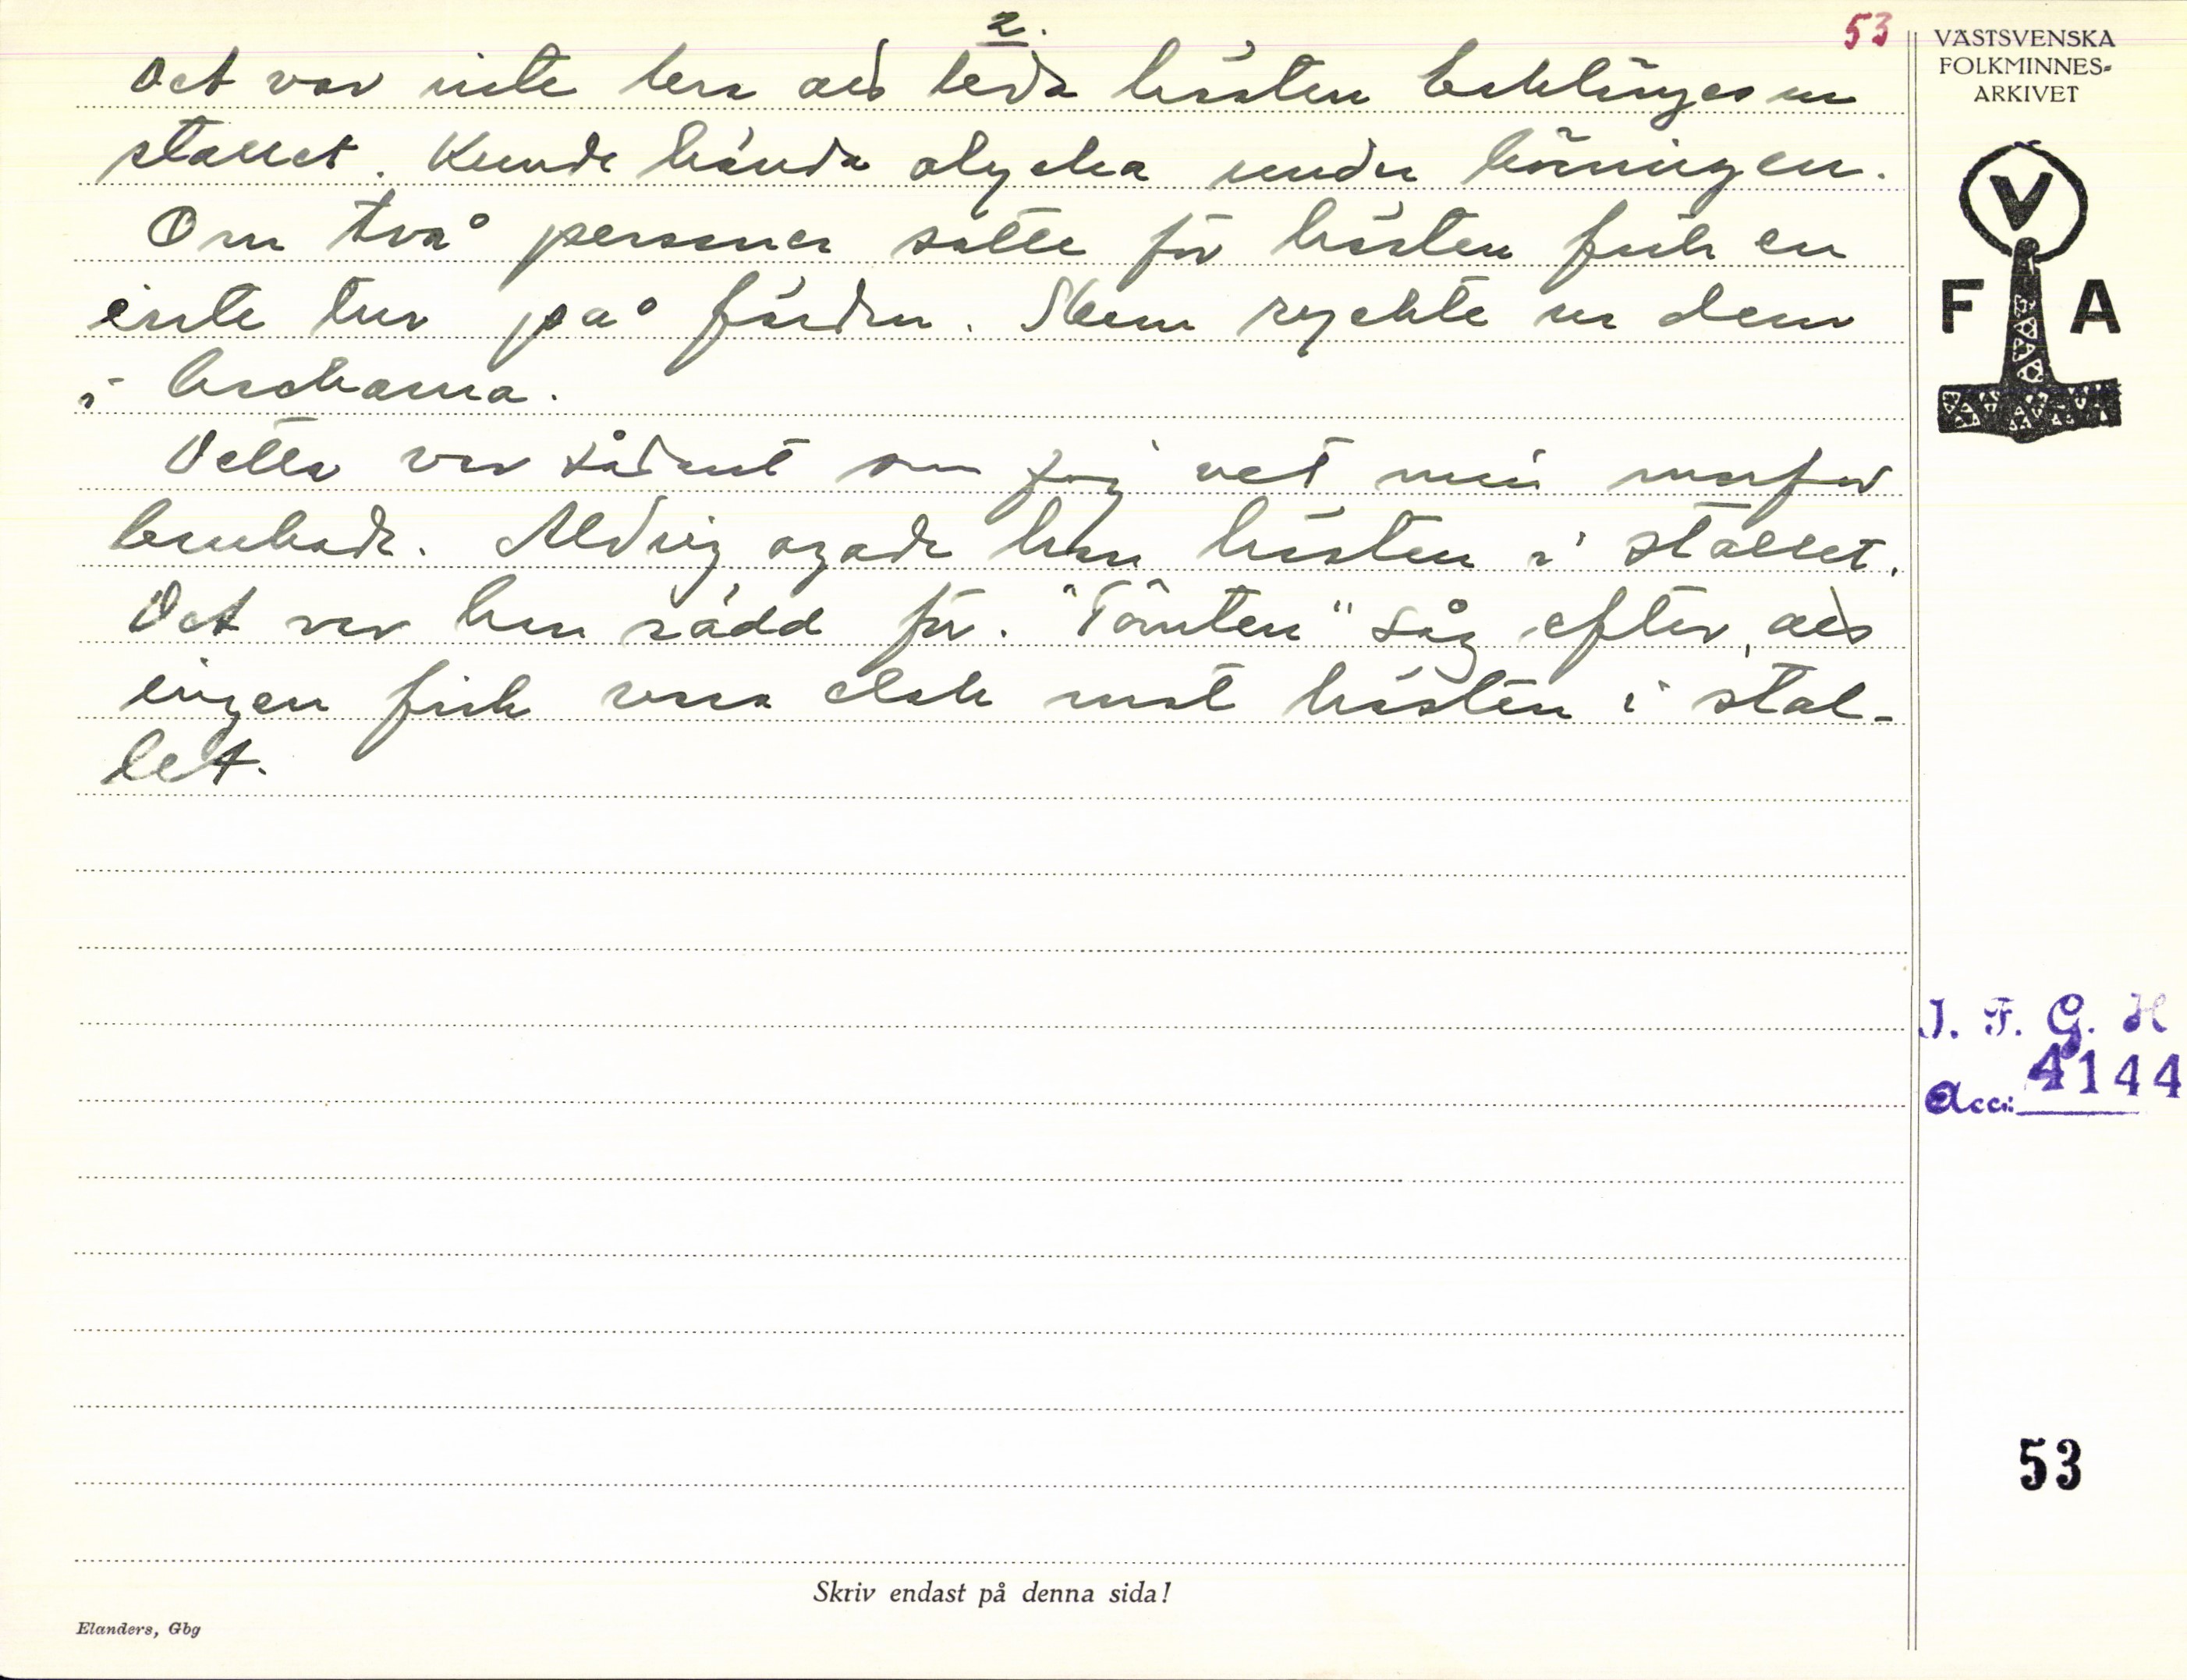 2.
53
Det var inte bra att leda hästen baklänges ur
stallet. Kunde hända olycka under körningen.
Om två personer satte för hästen fick en
inte tur på färden. Skam ryckte ur dem
i backarna.
Detta var sådant som jag vet min morfar
brukade. Aldrig agade han hästen i stallet.
Det var han rädd för. "Tomten" såg efter, att
ingen fick vara elak mot hästen i stal-
let.
VÄSTSVENSKA
FOLKMINNES-
ARKIVET
V
F A
I. F. G. H
Acc: 4144
53
Skriv endast på denna sida!
Elanders, Gbg